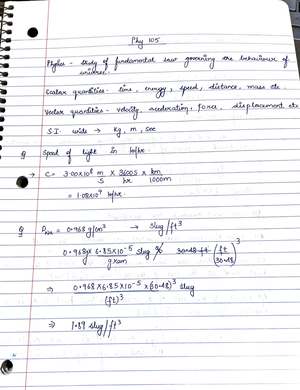 Phy 105
Physics - study of fundamental law governing the behaviour of
universe.
Scalar quantities - time, energy, speed, distance, mass etc.
Vector quantities - velocity, acceleration, force, displacement etc
S.I. units → kg, m, sec
Q Speed of light in km/hr.
→ C = 3.00×10⁸ m/s × 3600s/hr × km/1000m
= 1.08×10⁹ km/hr.
Q = 0.968 g/cm³ → slug/ft³
0.968 × 6.85×10⁻⁵ slug/gram 30.48 ft (ft/30.48)³
⇒ 0.968 × 6.85×10⁻⁵ × (30.48)³ slug
(ft)³
⇒ 1.89 slug/ft³